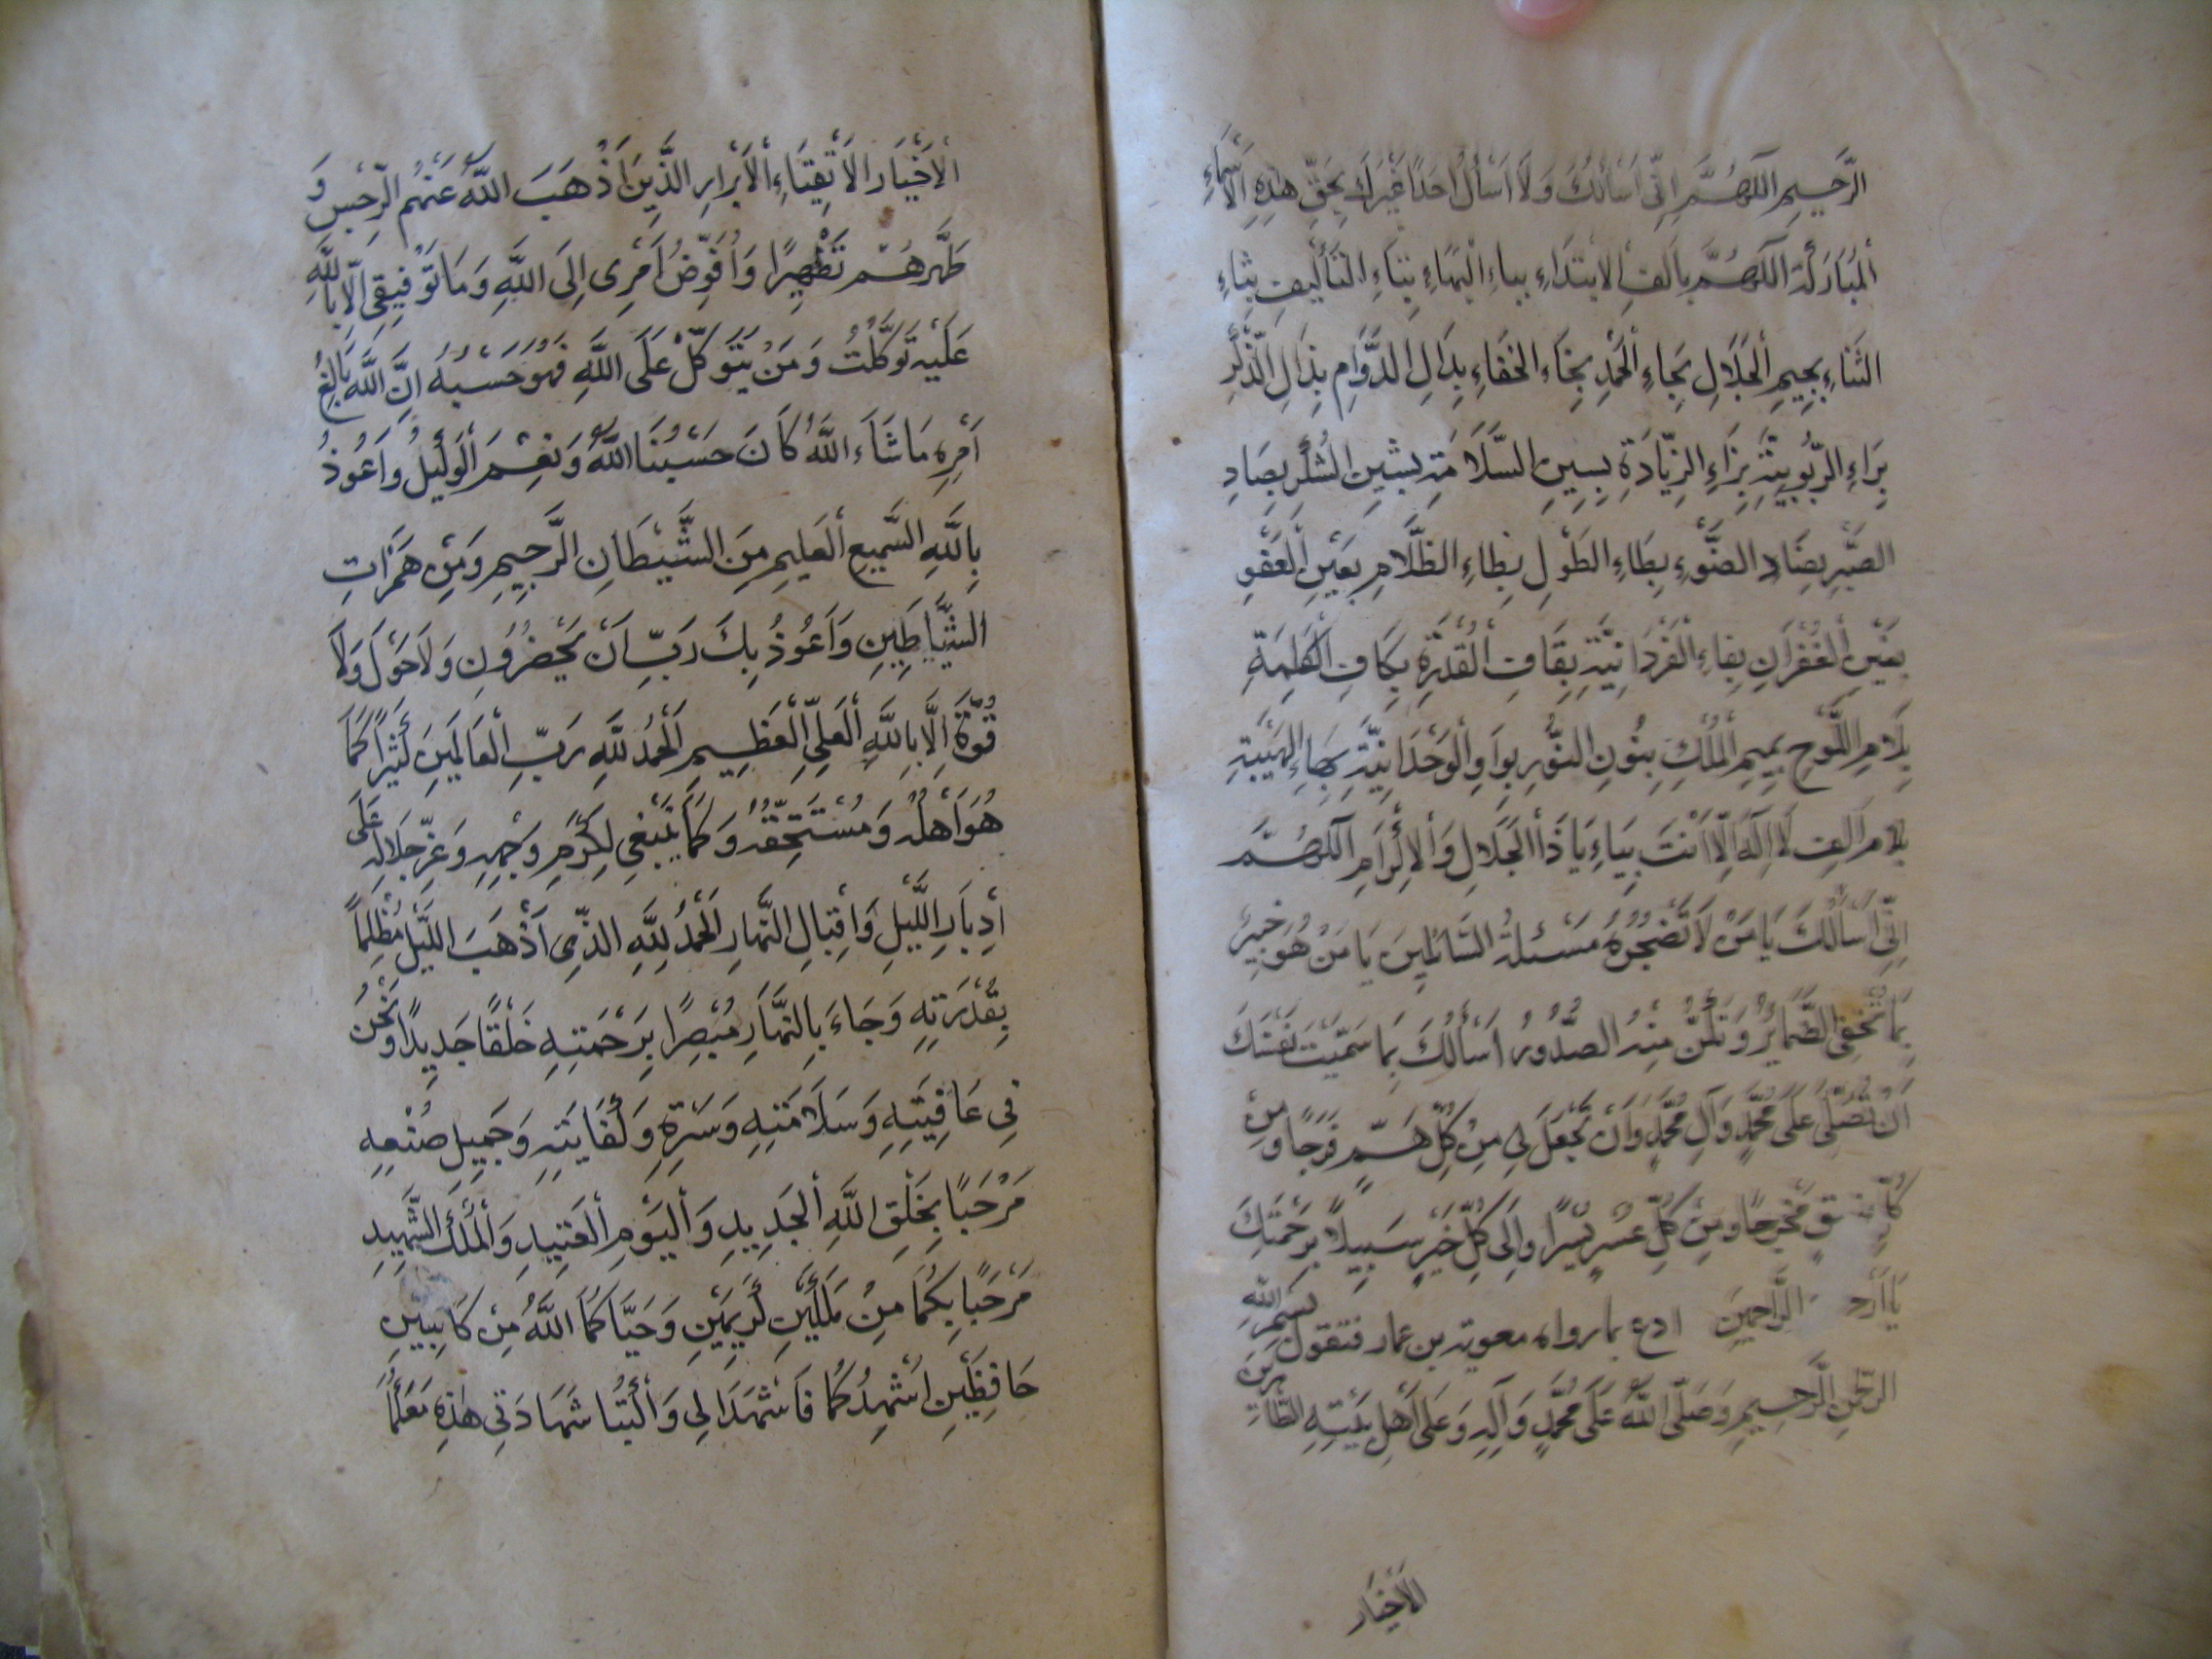 الرَّحِيمِ اَللّهُمَّ اِنّى اَسْأَلُكَ وَلاَ اَسْأَلُ اَحَدًا غَيْرَكَ بِحَقِّ هٰذِهِ الْاَسْمَاءِ
اْلمُبَارَكَةِ اَللّهُمَّ بِاَلِفِ الاِبْتِدَاءِ بِبَاءِ الْبَهَاءِ بِتَاءِ التَأْليفِ بِثَاءِ
الثَنَاءِ بِجِيمِ اْلجَلَالِ بِحَاءِ الْحَمْدِ بِخَاءِ الْخَفَاءِ بِدَالِ الدَّوَامِ بِذَالِ الذِّكْرِ
بِرَاءِ الرُّبُوبِيَّةِ بِزَاءِ الزِّيَادَةِ بِسِينِ السَّلَامَةِ بِشينِ الشُكْرِ بِصَادِ
الصَّبْرِ بِضَادِ الضَّوْءِ بِطَاءِ الطَوْلِ بِظَاءِ الظَّلَامِ بِعَيْنِ اْلعَفْوِ
بِغَيْنِ اْلغُفْرَانِ بِفَاءِ الْفَرْدَانِيَّةِ بِقَافِ اْلقُدْرَةِ بِكَافِ الْكَلِمَةِ
بِلَامِ اللَّوْحِ بِمِيمِ اْلمُلْكِ بِنُونِ النُّورِ بِوَاوِ اْلوَحْدَانِيَّةِ بِهَاءِ الْهَيْبَةِ
بِلَامِ اَلِفِ لَا اِلهَ اِلَّا اَنْتَ بِيَاءِ يَا ذَا الْجَلَالِ وَاْلاِكْرَامِ اَللّهُمَّ
اِنِّى اَسْأَلُكَ يَا مَنْ لَا تُضْجِرُهُ مَسْئَلَةُ السَّائِلِينَ يَا مَنْ هُوَ خَبِيرٌ
بِمَا تُخْفِى الضَّمَايِرُ وَتَكُنُّ مِنْهُ الصُّدُورُ اَسْأَلُكَ بِمَا سَمَّيْتَ نَفْسَكَ
اَنْ تُصَلِّىَ عَلَى مُحَمَّدٍ وَآلِ مُحَمَّدٍ وَاَنْ تَجْعَلَ لِى مِنْ كُلِّ هَمٍّ فَرَجًا وَمِنْ
كُلِّ ضيقٍ مَخْرَجًا وَمِنْ كُلِّ عُسْرٍ يُسْرًا وَاِلَى كُلِّ خَيْرٍ سَبِيلاً بِرَحْمَتِكَ
يَا اَرْحَمَ الرَّاحِمِينَ ادع بما رواه معوية بن عمار فتقول بِسْمِ اللهِ
الرَّحْمنِ الرَّحِيمِ وَصَلَّى اللَّهُ عَلَى مُحَمَّدٍ وَآلِهِ وَعَلَى اَهْلِ بَيْتِهِ الطَّاهِرِينَ
الاَخْيَارِ
الْاَخْيَارِ الْاَتْقِيَاءِ اْلاَبْرَارِ الَّذِينَ اَذْهَبَ اللَّهُ عَنْهُمُ الرِّجْسَ وَ
طَهَّرَهُمْ تَطْهِيرًا وَاُفَوِّضُ اَمْرِى اِلَى اللَّهِ وَمَا تَوْفِيقِى اِلَّا بِاللَّهِ
عَلَيْهِ تَوَكَّلْتُ وَمَنْ يَتَوَكَّلْ عَلَى اللَّهِ فَهُوَ حَسْبُهُ اِنَّ اللَّهَ بَالِغُ
اَمْرِهِ مَا شَاءَ اللَّهُ كَانَ حَسْبُنَا اللَّهُ وَنِعْمَ اْلوَكِيلُ وَاَعُوذُ
بِاللَّهِ السَّمِيعِ اْلعَلِيمِ مِنَ الشَّيْطَانِ الرَّجِيمِ وَمِنْ هَمَزَاتِ
الشَّيَاطِينِ وَاَعُوذُ بِكَ رَبِّ اَنْ يَحْضُرُونِ وَلَا حَوْلَ وَلَا
قُوَّةَ اِلَّا بِاللَّهِ اْلعَلِىِّ اْلعَظِيمِ اَلْحَمْدُ لِلَّهِ رَبِّ اْلعَالَمِينَ كَثِيرًا كَمَا
هُوَ اَهْلُهُ وَمُسْتَحِقُّهُ وَكَمَا يَنْبَغِى لِكَرَمِ وَجْهِهِ وَعِزِّ جَلَالِهِ عَلَى
اِدْبَارِ اللَّيْلِ وَاِقْبَالِ النَّهَارِ اَلْحَمْدُ لِلَّهِ الَّذِى اَذْهَبَ اللَّيْلَ مُظْلِمًا
بِقُدْرَتِهِ وَجَاءَ بِالنَّهَارِ مُبْصِرًا بِرَحْمَتِهِ خَلْقًا جَدِيدًا وَنَحْنُ
فِى عَافِيَتِهِ وَسَلَامَتِهِ وَسَتْرِهِ وَكِفَايَتِهِ وَجَمِيلِ صُنْعِهِ
مَرْحَبًا بِخَلْقِ اللَّهِ اْلجَدِيدِ وَاْليَوْمِ اْلعَتِيدِ وَاْلمَلَكِ الشَّهِيدِ
مَرْحَبًا بِكُمَا مِنْ مَلَكَيْنِ كَرِيمَيْنِ وَحَيَّاكُمَا اللَّهُ مِنْ كَاتِبَيْنِ
حَافِظَيْنِ اُشْهِدُكُمَا فَاشْهَدَا لِى وَاكْتُبَا شَهَادَتِى هٰذِهِ مَعَكُمَا